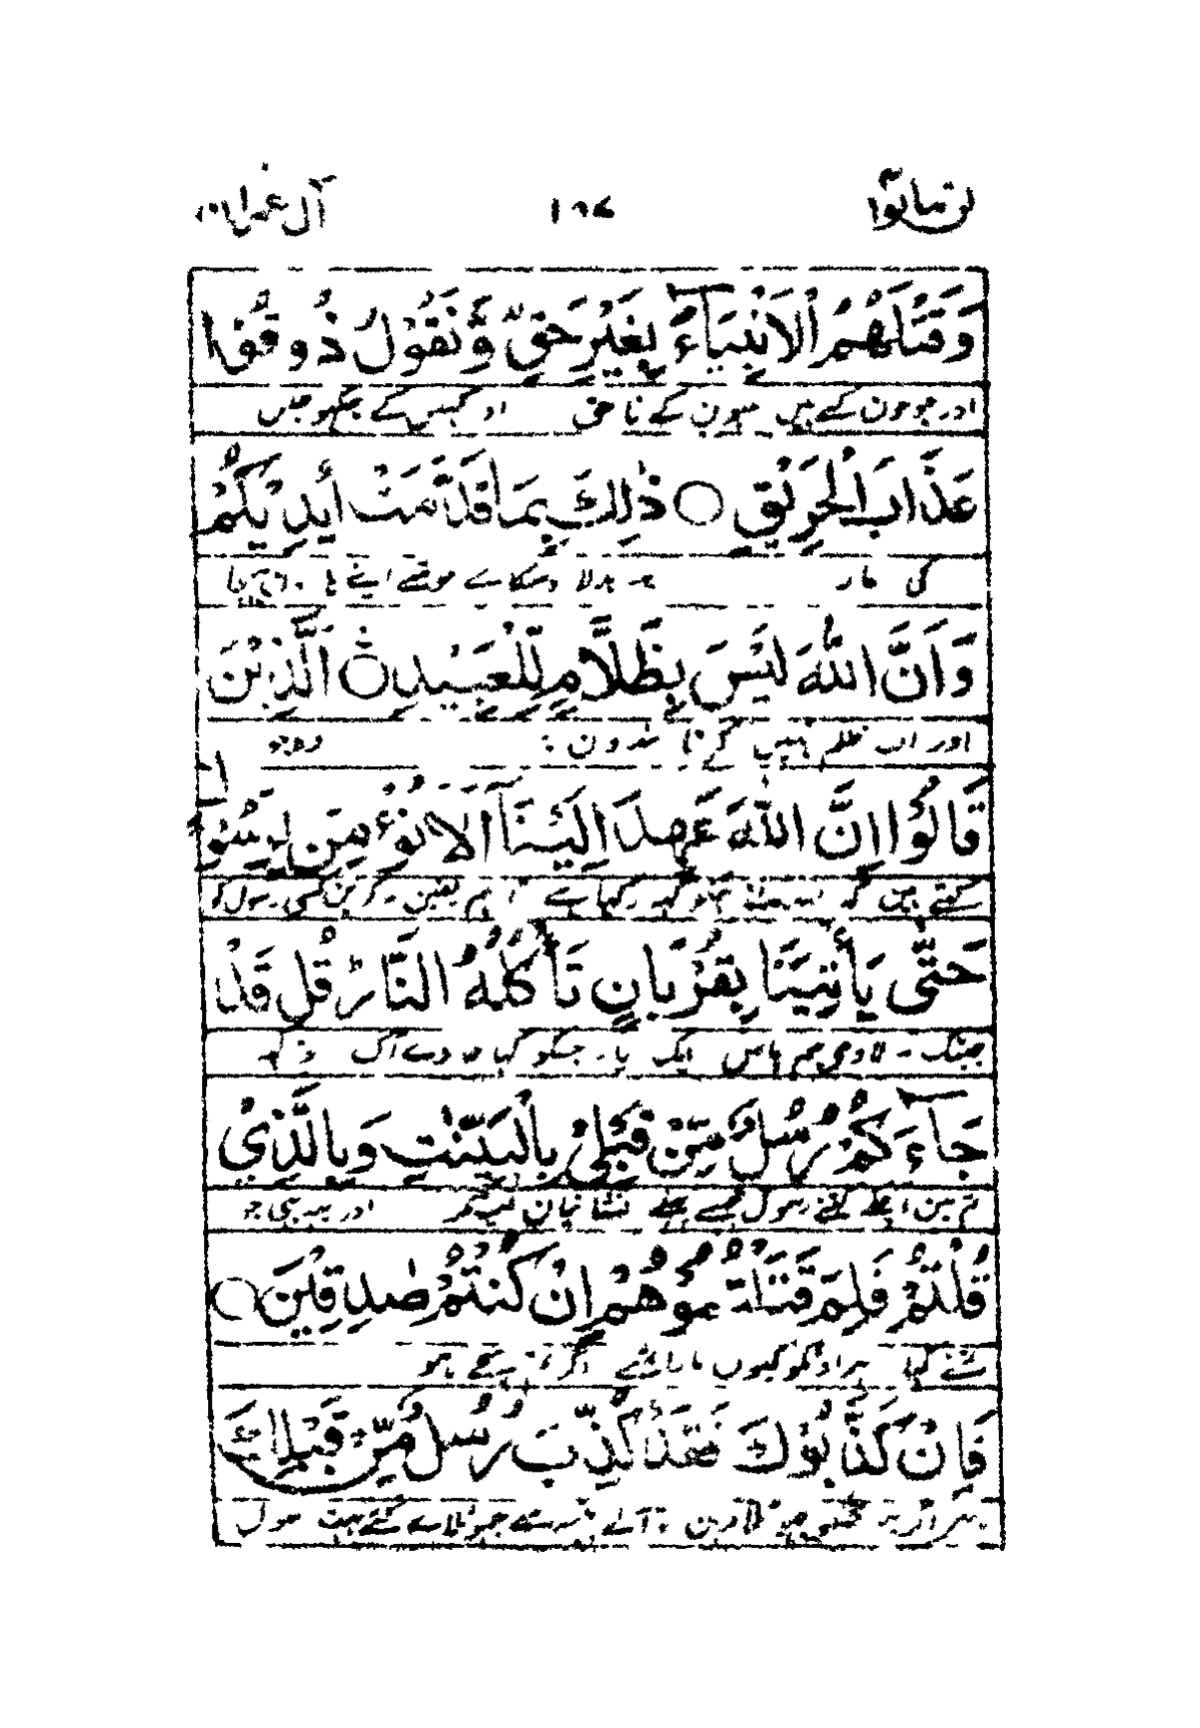 لن تنالوا ٤ ١٠٧ آل عمران
وَقَتْلَهُمُ الْاَنْبِيَآءَ بِغَيْرِ حَقٍّ وَّنَقُوْلُ ذُوْقُوْا
اور جو خون کئے ہیں نبیون کے ناحق اور کہیں گے چکھو جلن
عَذَابَ الْحَرِيْقِ ○ ذٰلِكَ بِمَا قَدَّمَتْ اَيْدِيْكُمْ
کی مار یہ بدلا اپنے
وَاَنَّ اللّٰهَ لَيْسَ بِظَلَّامٍ لِّلْعَبِيْدِ ○ اَلَّذِيْنَ
اور اللہ ظلم نہیں کرتا بندون وہ جو
قَالُوْۤا اِنَّ اللّٰهَ عَهِدَ اِلَيْنَاۤ اَلَّا نُؤْمِنَ لِرَسُوْلٍ
کہتے ہیں کہ اللہ نے ہمکو کہہ رکھا ہے ہم یقین نہ کرین کسی رسول کو
حَتّٰى يَاْتِيَنَا بِقُرْبَانٍ تَاْكُلُهُ النَّارُ قُلْ قَدْ
جبتک نہ لاوے ہم پاس ایک نیاز جسکو کھا جاوے آگ تو کہہ
جَآءَكُمْ رُسُلٌ مِّنْ قَبْلِيْ بِالْبَيِّنٰتِ وَبِالَّذِيْ
تم مین آچکے کتنے رسول مجھسے پہلے نشانیان لیکر اور یہ بھی جو
قُلْتُمْ فَلِمَ قَتَلْتُمُوْهُمْ اِنْ كُنْتُمْ صٰدِقِيْنَ ○
تمنے کہا پھر اونکو کیوں مارا تمنے اگر تم سچے ہو
فَاِنْ كَذَّبُوْكَ فَقَدْ كُذِّبَ رُسُلٌ مِّنْ قَبْلِكَ
پھر اگر یہ تجھکو جھٹلاوین تو آگے تجھسے جھٹلائے گئے بہت رسول